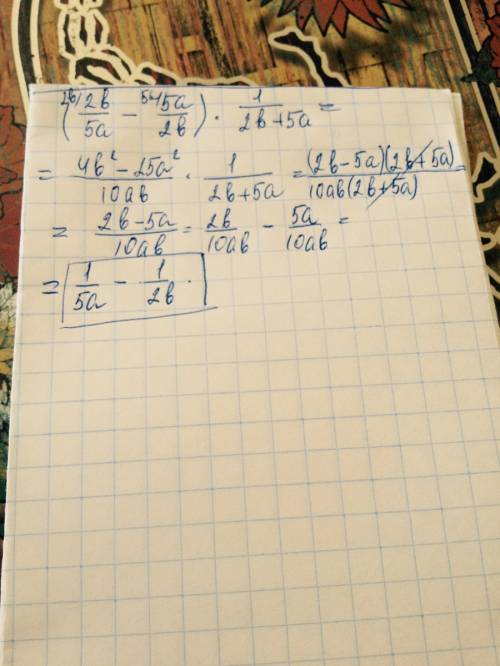 (²ᵇ⁾2b/5a − ⁵ᵃ⁾5a/2b) · 1/(2b+5a) =
= (4b² − 25a²)/10ab · 1/(2b+5a) = (2b−5a)(2b+5a)/10ab(2b+5a) =
= (2b−5a)/10ab = 2b/10ab − 5a/10ab =
= 1/5a − 1/2b.